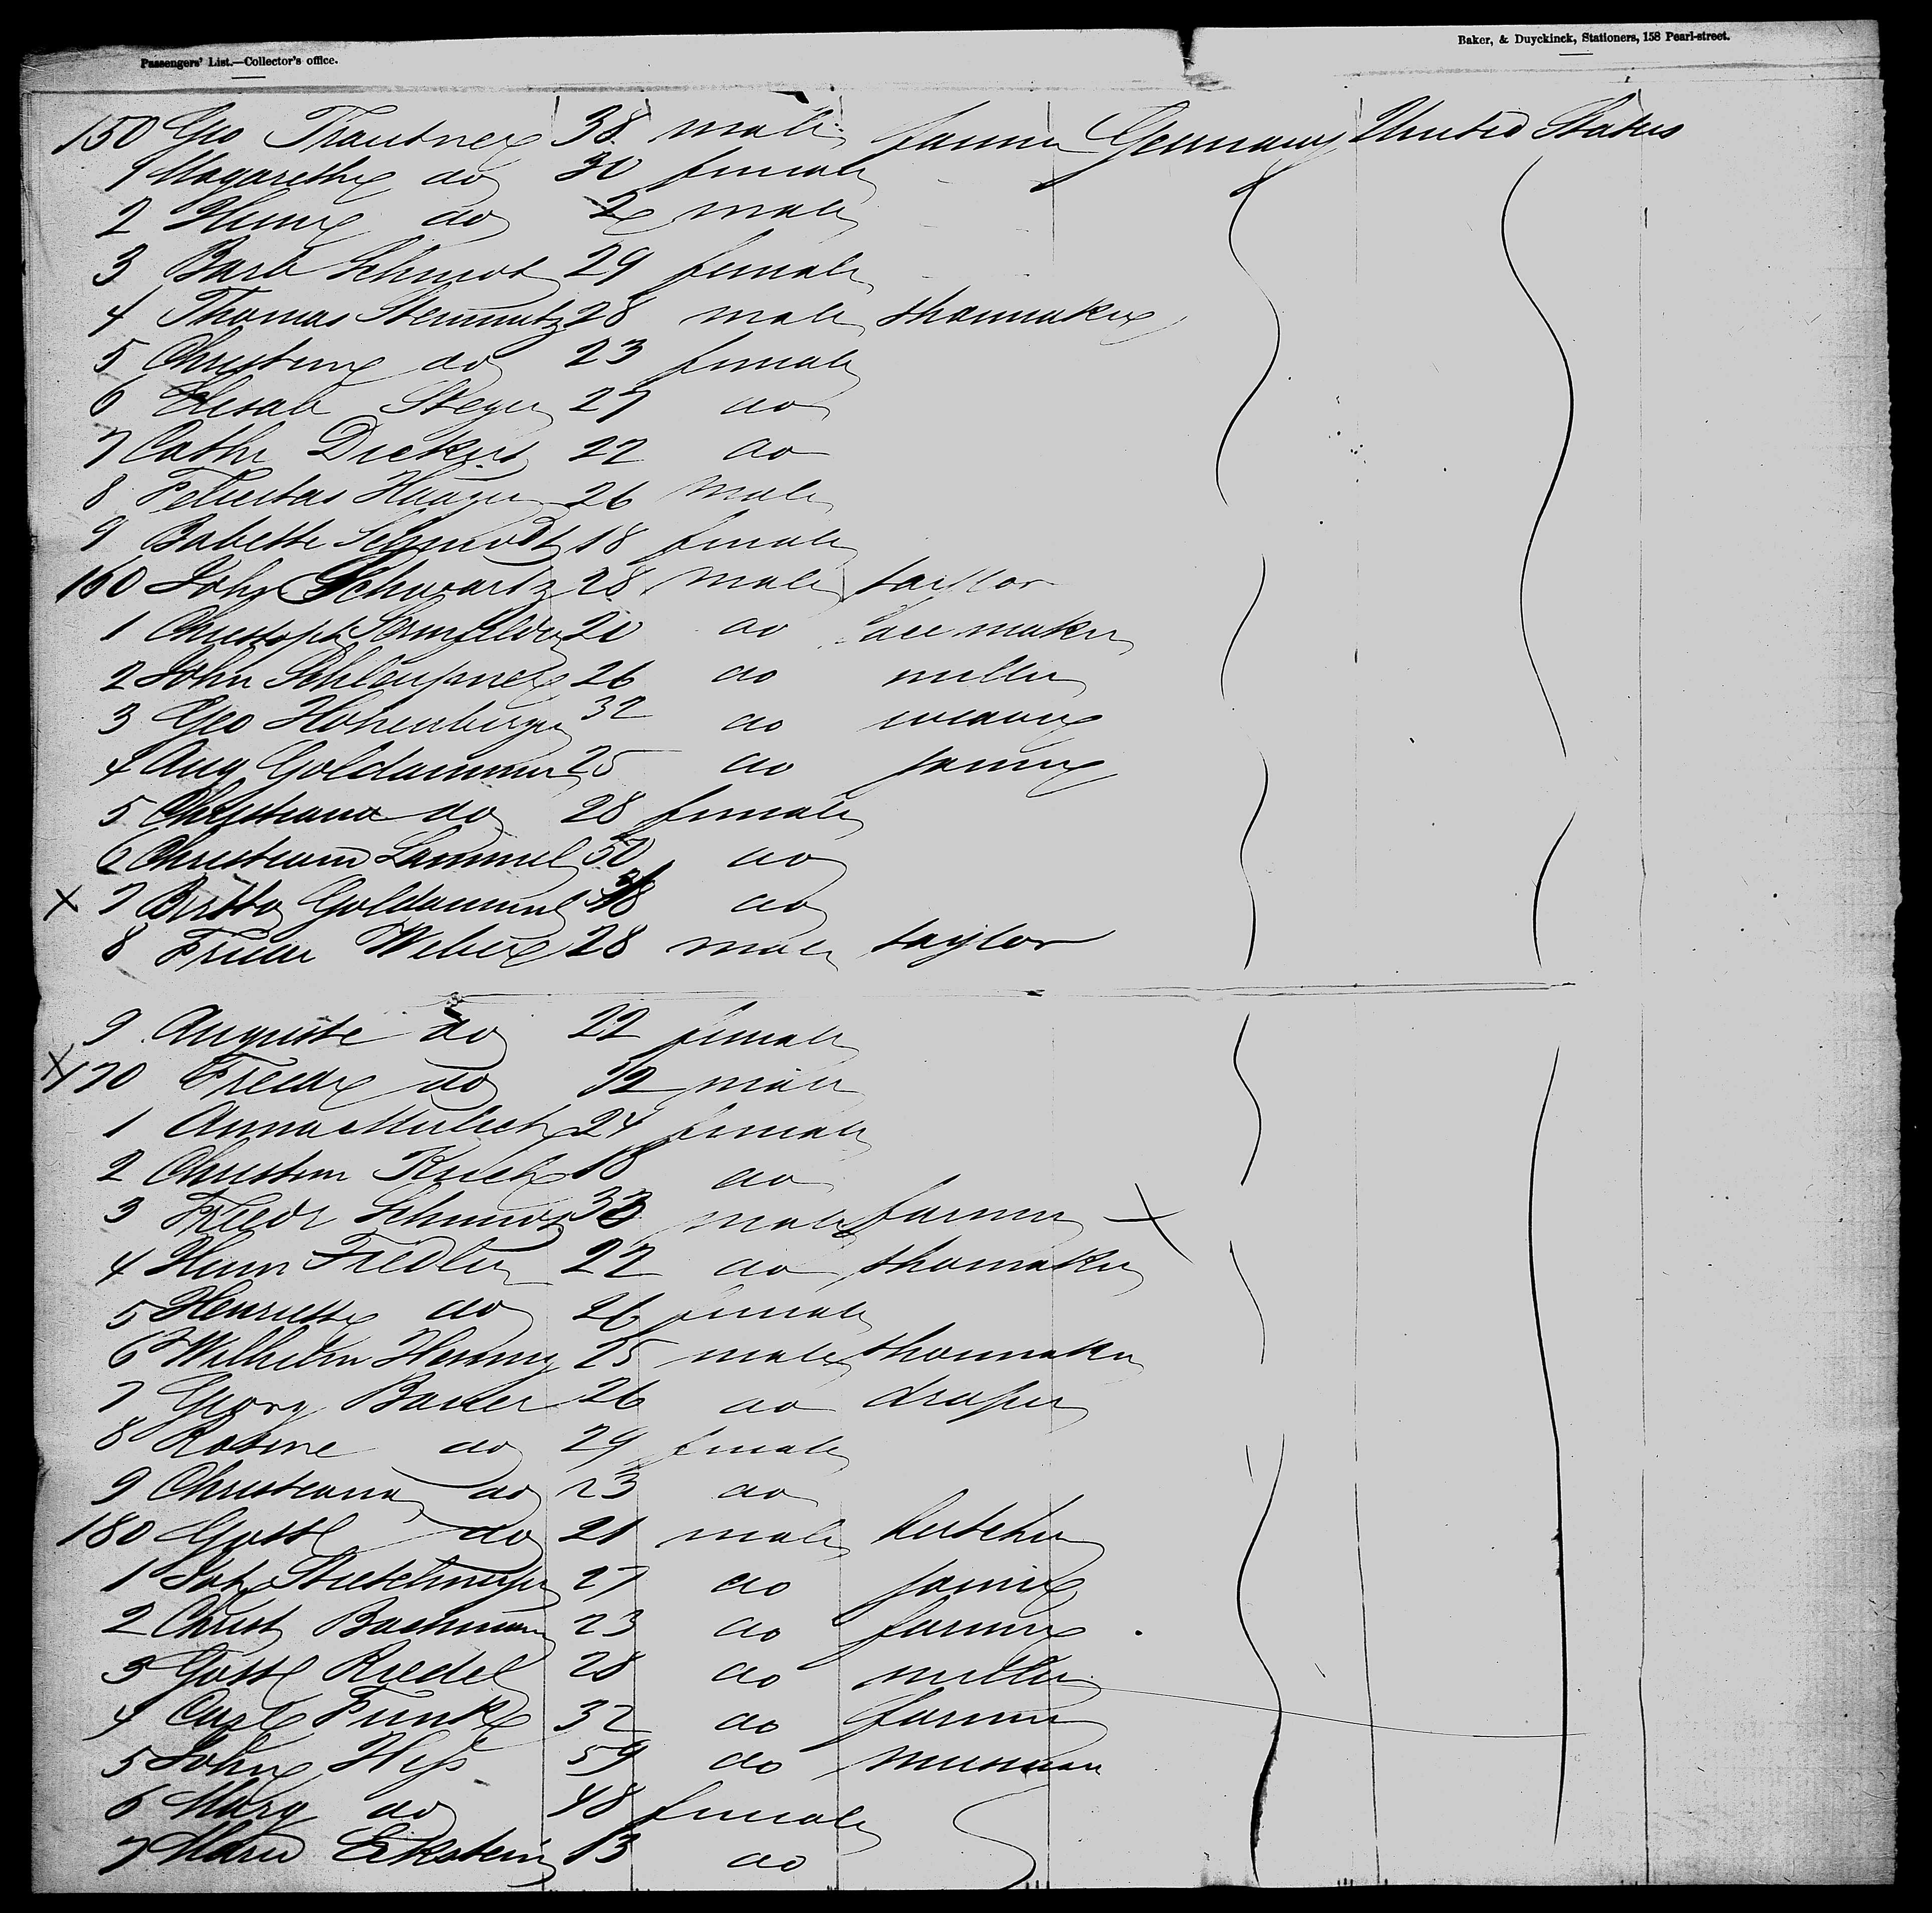 Passengers' List.—Collector's office.
Baker, & Duyckinck, Stationers, 158 Pearl-street.
150 Geo Trautner 38 male farmer Germany United States
1 Magarethe do 30 female
2 do 2 male
3 Barb Schmidt 29 female
4 Thomas 28 male shoemaker
5 Christine do 23 female
6 Elisab Steger 27 do
7 Cathr 22 do
8 Felicitas 26 male
9 Babette Schmidt 18 female
160 John Schwartz 28 male taylor
1 Christoph 20 do lace maker
2 John Schleupner 26 do miller
3 Geo Hohenberger 32 do weaver
4 Aug Goldammer 25 do farmer
5 Christiana do 28 female
6 Christiane Lammel 50 do
X 7 Goldammer do
8 Frieder Weber 28 male taylor
9 Auguste do 22 female
X 170 Friedr do male
1 Anna 24 female
2 Christine 18 do
3 Friedr Schmidt 33 male farmer X
4 Herm Fiedler 22 do shomaker
5 Henriette do 26 female
6 Wilhelm Henning 25 male shoemaker
7 Georg Bauer 26 do draper
8 Rosine do 29 female
9 Christiana do 23 do
180 Gottl do 21 male butcher
1 Joh 27 do farmer
2 Christ Bachmann 23 do farmer
3 Gottl Riedel 28 do miller
4 Carl Funk 32 do farmer
5 John Heß 59 do
6 Marg do 48 female
7 Marie Eckstein 13 do